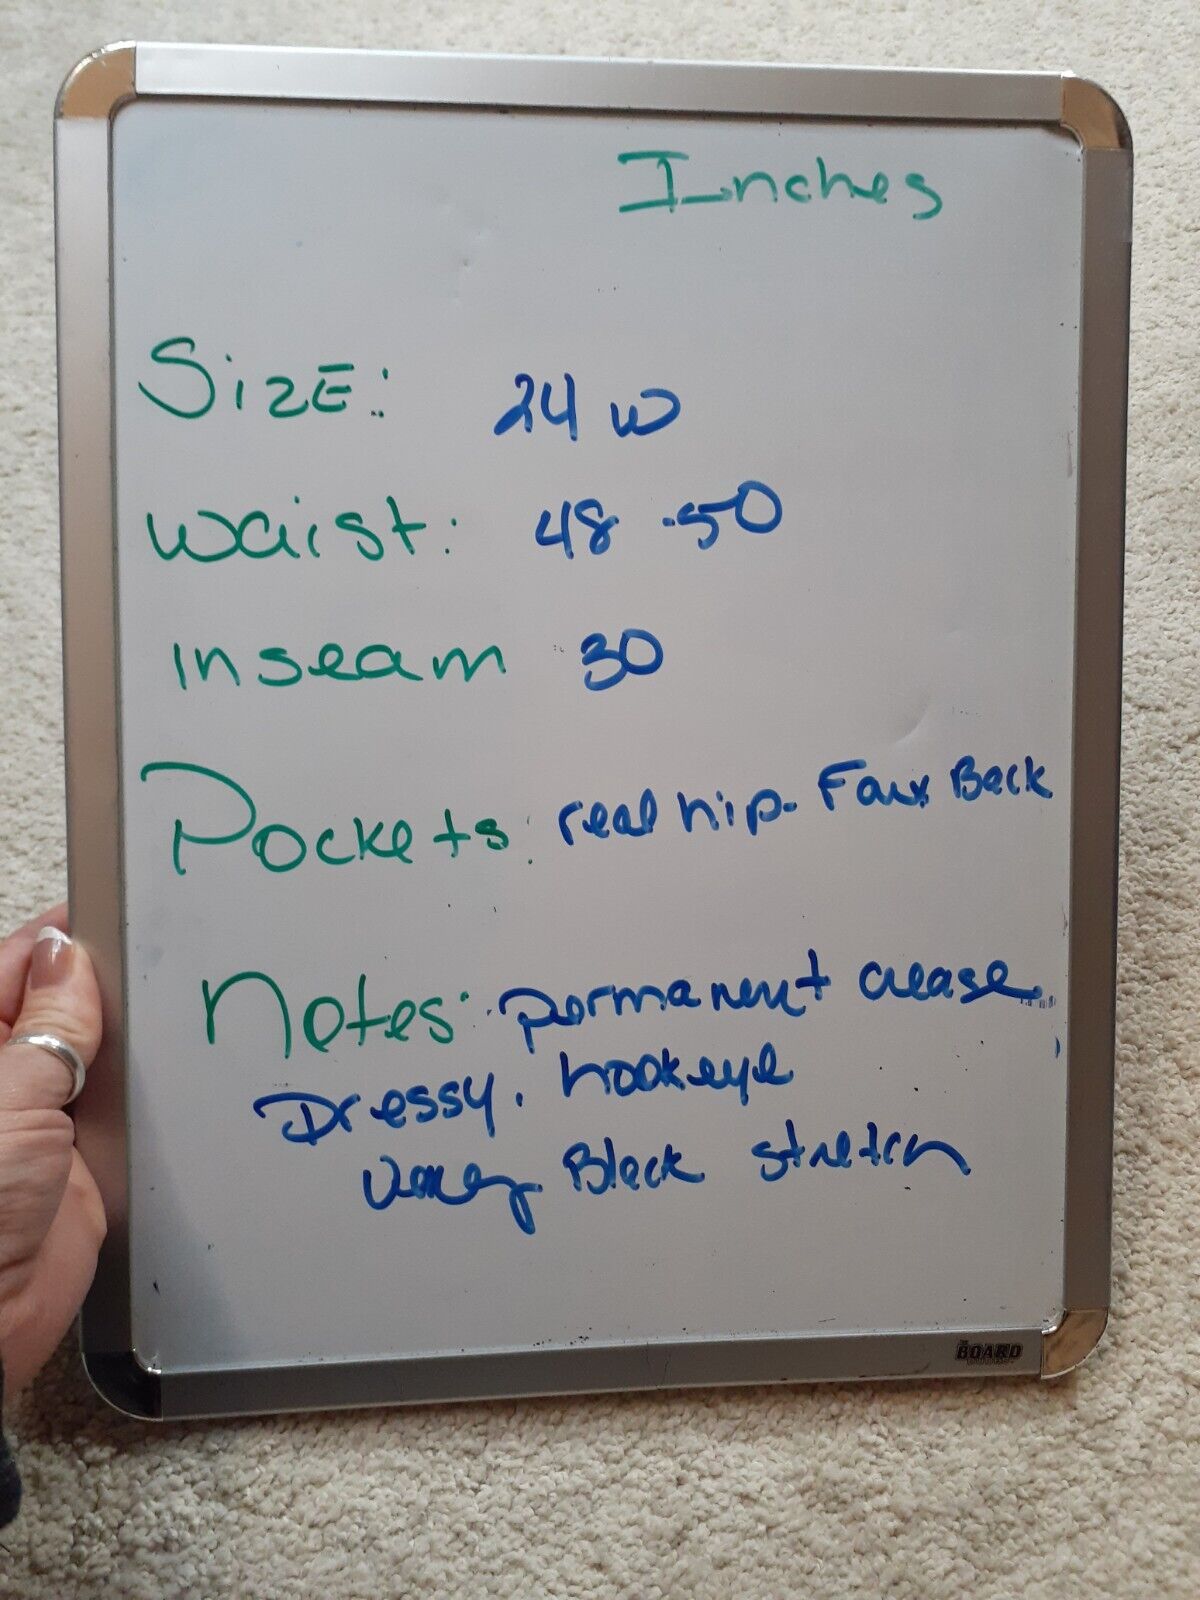 Inches
SIZE: 24 w
waist: 48-50
inseam 30
Pockets: real hip- Faux Back
Notes: permanent crease
Dressy. hookeye
Very Black stretch
BOARD